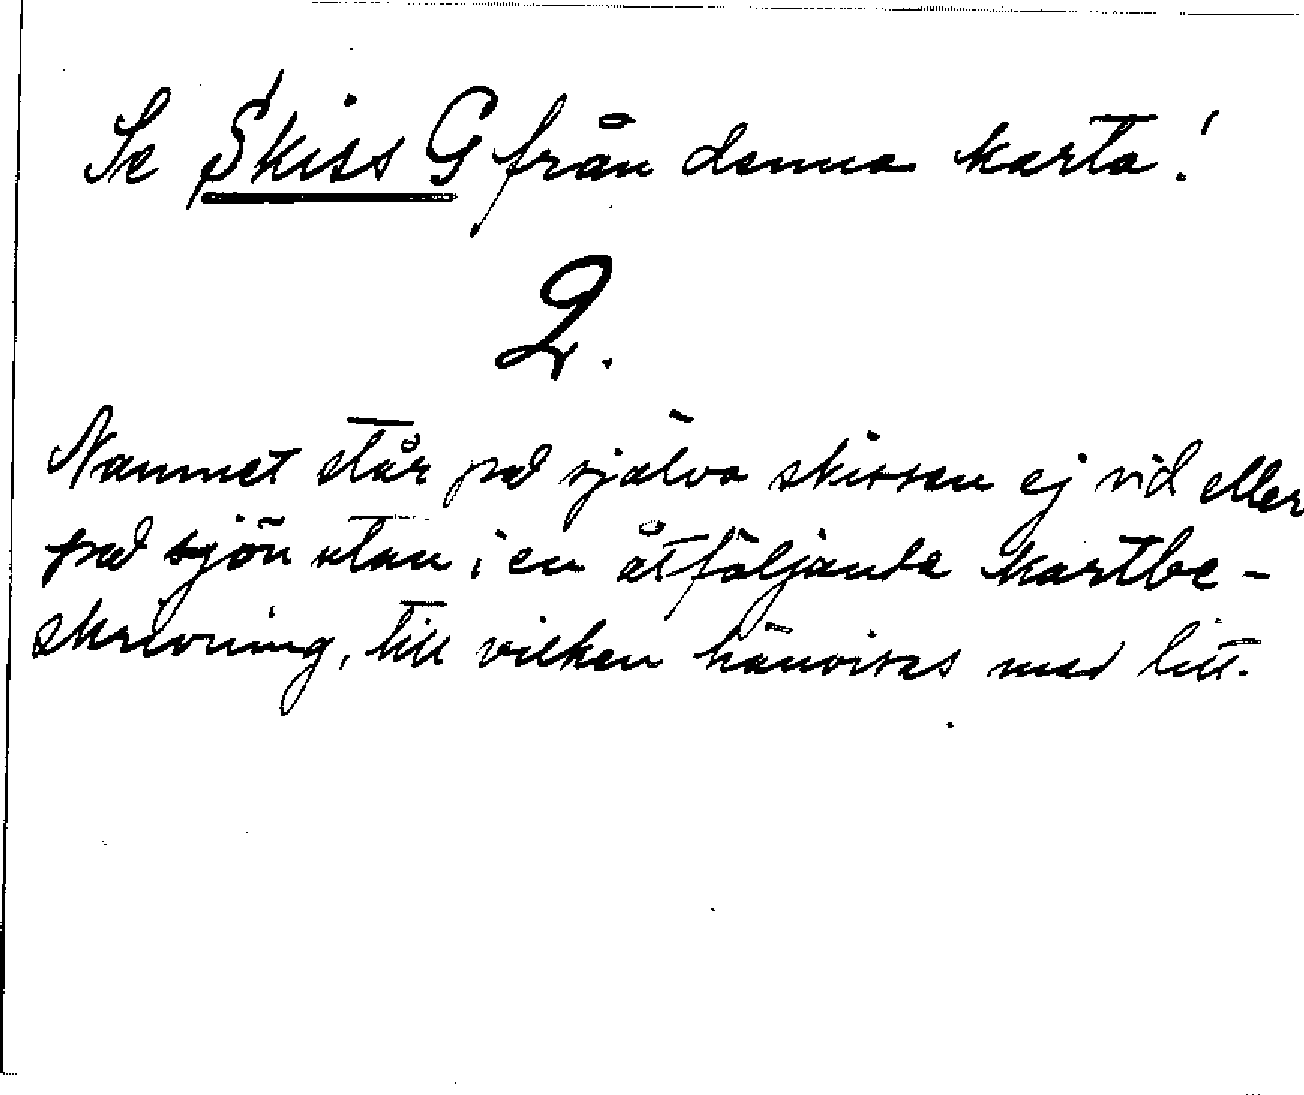 Se Skiss G från denna karta!
2.
Namnet står på själva skissen ej vid eller
på sjön utan i en åtföljande kartbe-
skrivning, till vilken hänvisas med litt.